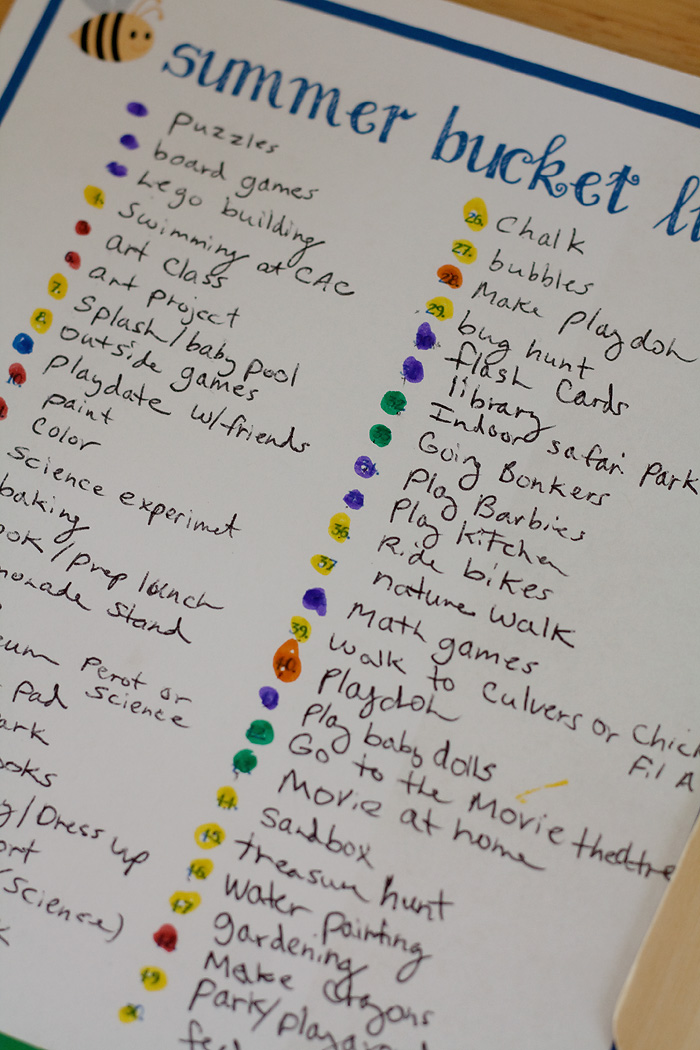 summer bucket li
Puzzles
board games
Lego building
4. Swimming at CAC
art class
6. art project
7. Splash/baby pool
8. outside games
playdate w/friends
10. paint
color
science experimet
baking
ook/prep lunch
monade stand
eum Perot or
Pad Science
ark
ooks
y/Dress up
ort
(Science)
k
26. Chalk
27. bubbles
28. Make playdoh
29. bug hunt
30. flash cards
library
32. Indoor safari Park
Going Bonkers
Play Barbies
Play Kitchen
36. Ride bikes
37 nature walk
Math games
39. Walk to Culvers or Chick
Fil A
40. Playdoh
Play baby dolls
Go to the Movie theatre
Movie at home
44. Sandbox
45. treasure hunt
46. water painting
47. gardening
48. Make crayons
49. Park/playground
50.